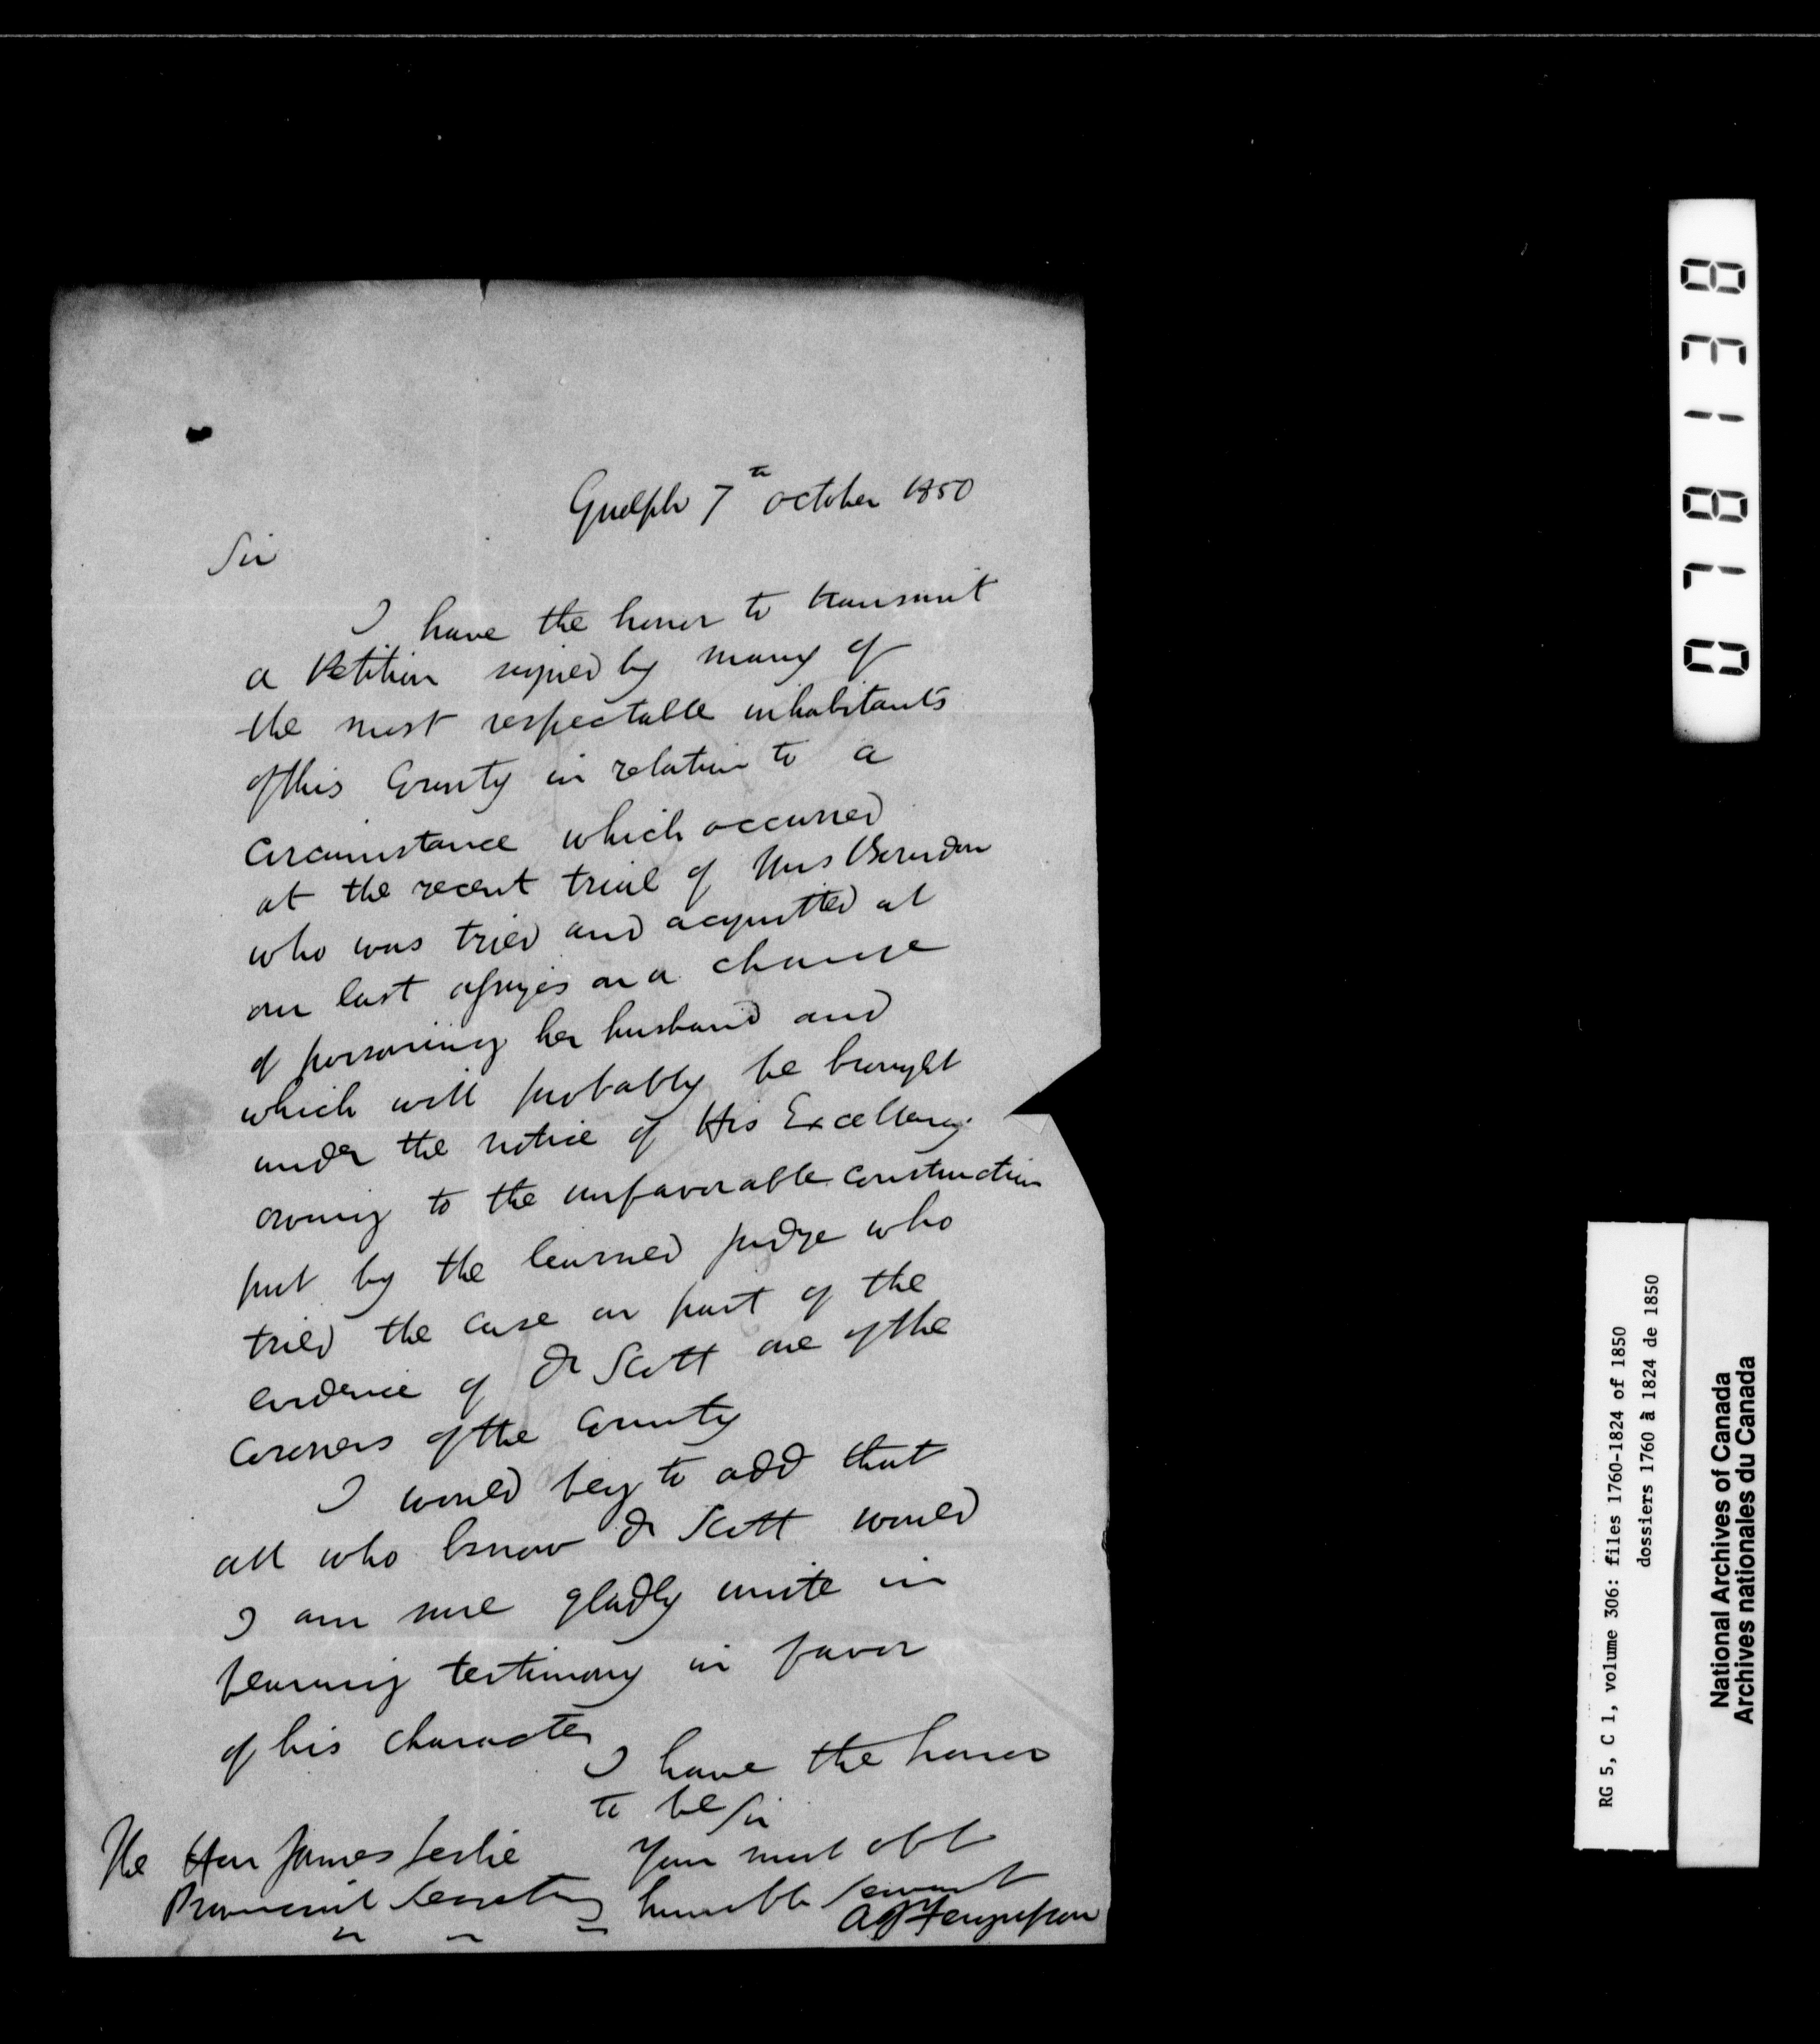 Guelph 7th October 1850
Sir
I have the honor to transmit
a Petition signed by many of
the most respectable inhabitants
of this County in relation to a
circumstance which occurred
at the recent trial of Mrs
who was tried and acquitted at
our last assizes on a charge
of poisoning her husband and
which will probably be brought
under the notice of His Excellency
owing to the unfavorable construction
put by the learned judge who
tried the case on part of the
evidence of Dr Scott one of the
Coroners of the County
I would beg to add that
all who know Dr Scott would
I am sure gladly unite in
bearing testimony in favor
of his character
I have the honor
to be Sir
Your most obt
humble servant
A J Fergusson
The Hon James Leslie
Provincial Secretary
0781838
RG 5, C 1, volume 306: files 1760-1824 of 1850
dossiers 1760 à 1824 de 1850
National Archives of Canada
Archives nationales du Canada